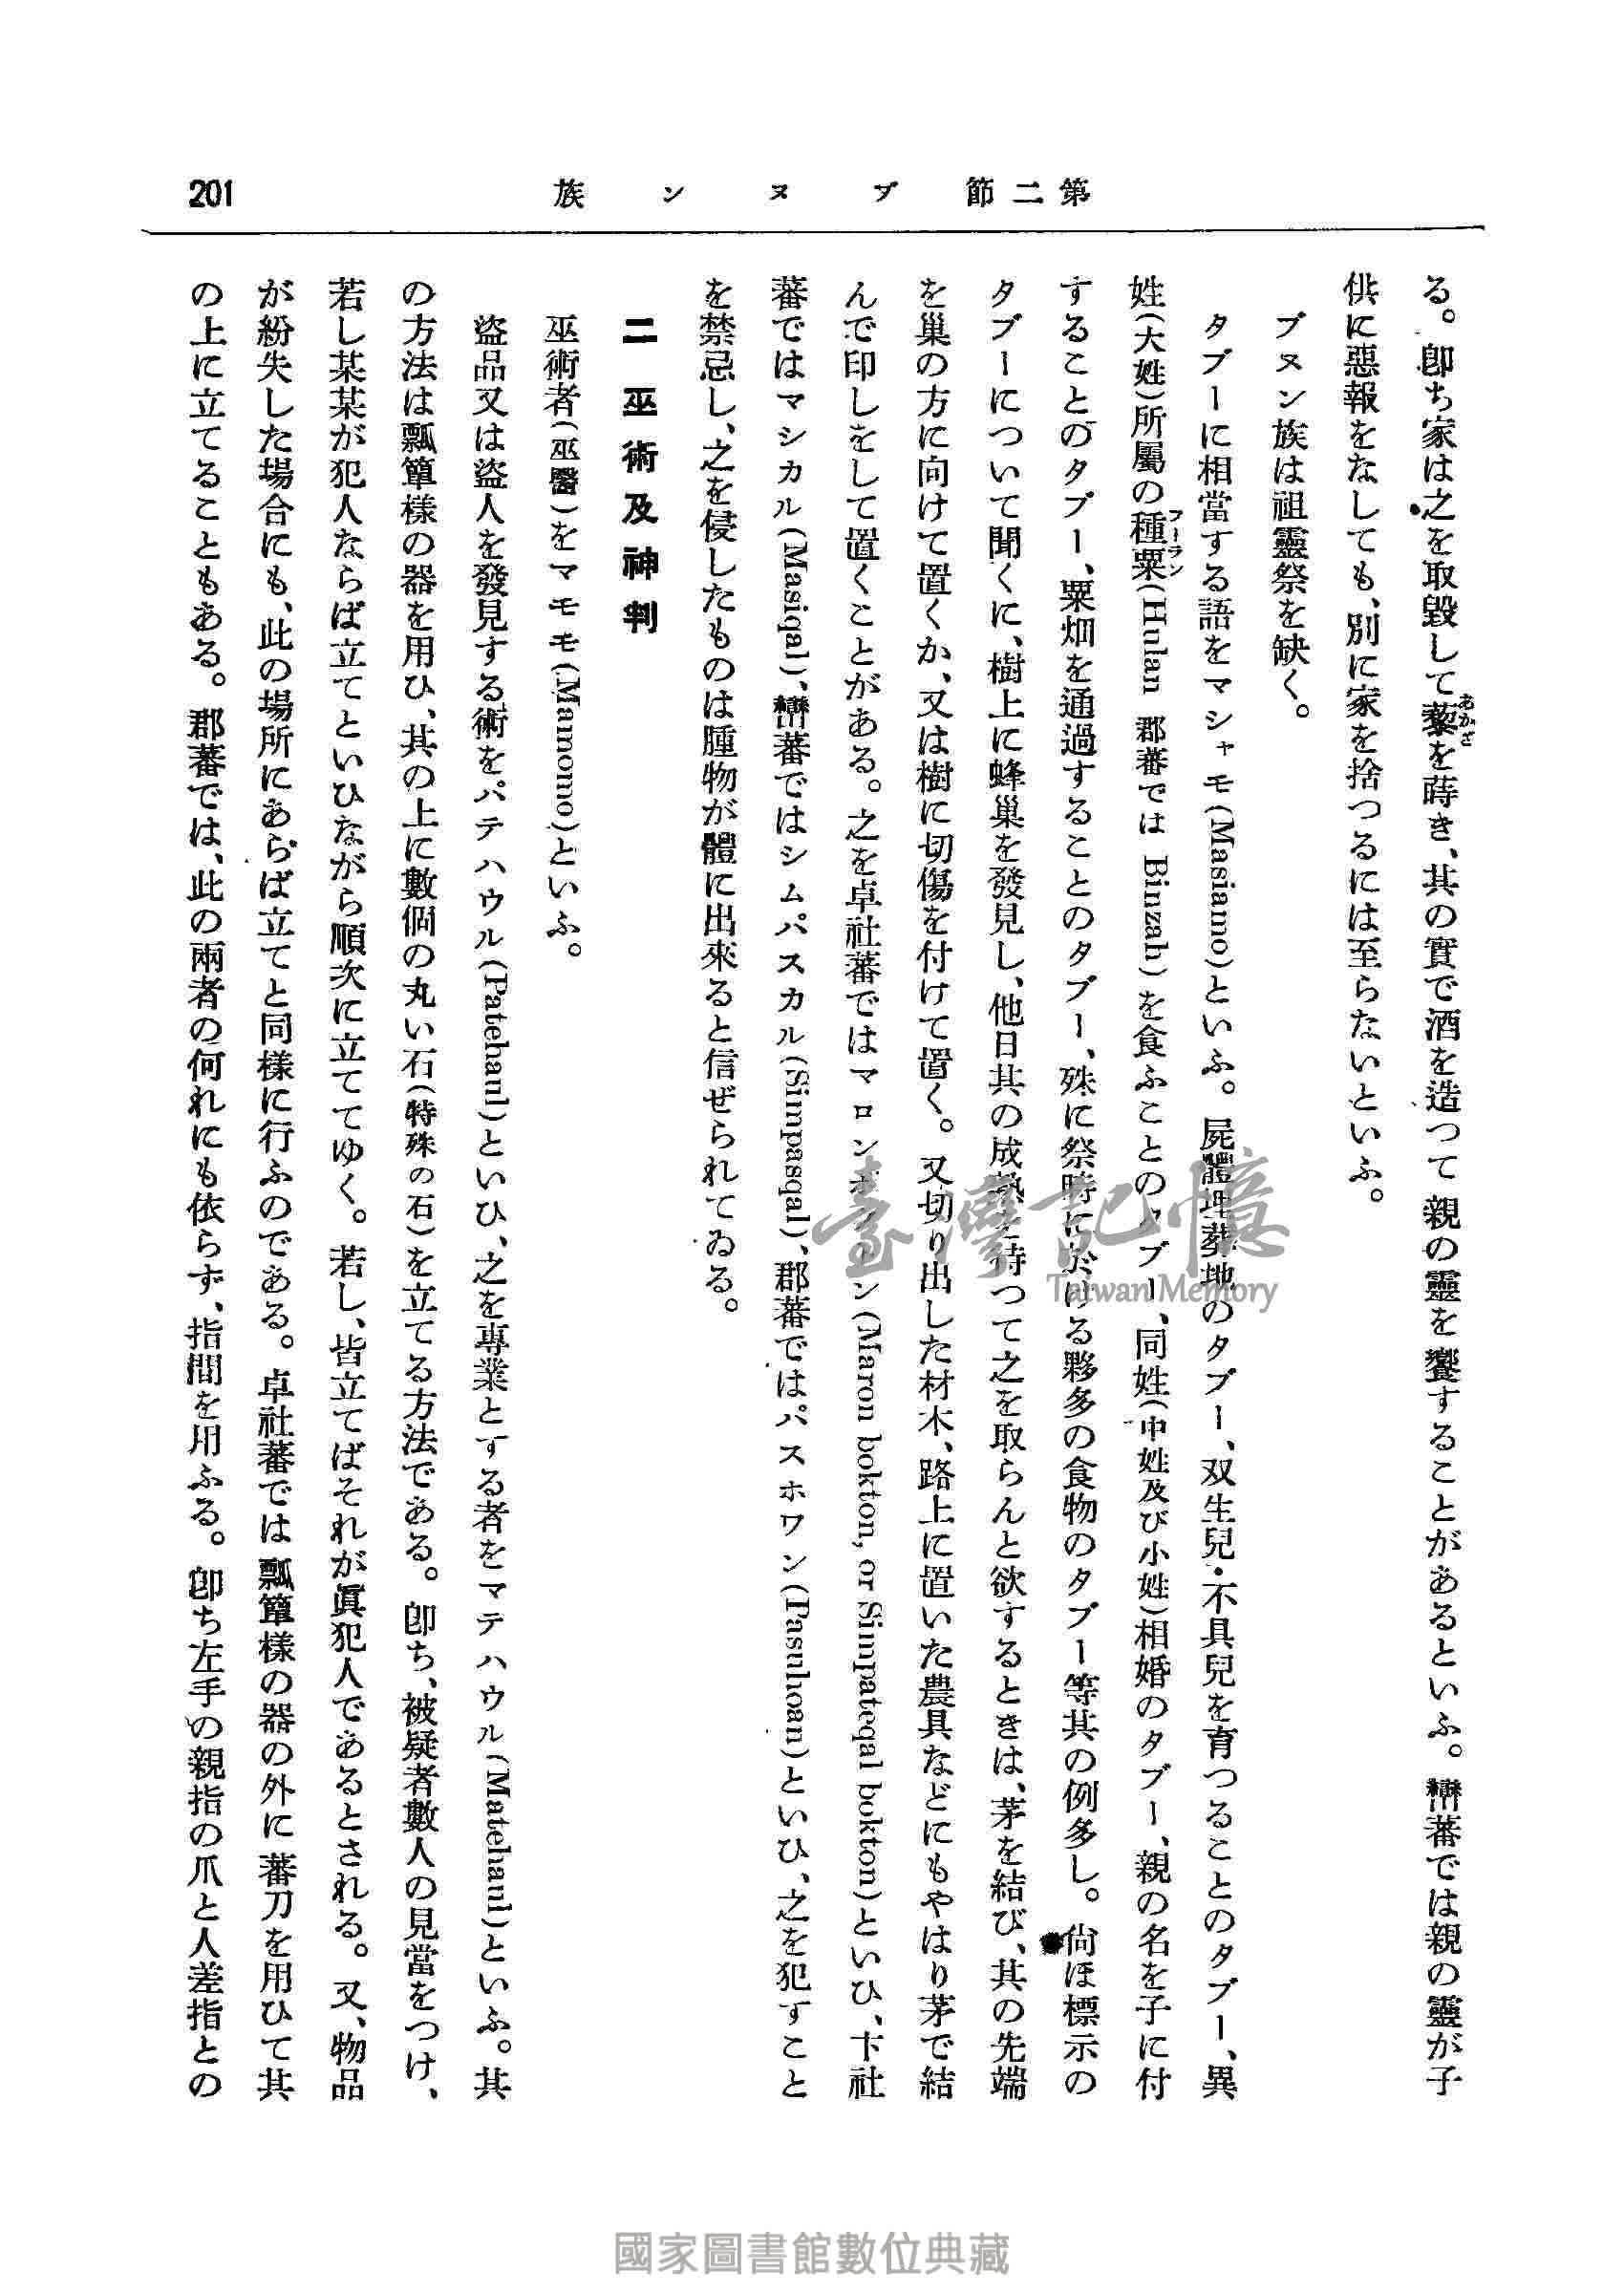 第二節 ブヌン族
201
る。卽ち家は之を取毀して藜を蒔き、其の實で酒を造つて親の靈を饗することがあるといふ。巒蕃では親の靈が子
あかざ
供に惡報をなしても、別に家を捨つるには至らないといふ。
ブヌン族は祖靈祭を缺く。
タブーに相當する語をマシャモ(Masiamo)といふ。屍體埋葬地のタブー、双生兒・不具兒を育つることのタブー、異
姓(大姓)所屬の種粟(Hulan 郡蕃では Binzah)を食ふことのタブー、同姓(中姓及び小姓)相婚のタブー、親の名を子に付
フーラン
することのタブー、粟畑を通過することのタブー、殊に祭時に於ける夥多の食物のタブー等其の例多し。尙ほ標示の
タブーについて聞くに、樹上に蜂巢を發見し、他日其の成熟を待つて之を取らんと欲するときは、茅を結び、其の先端
を巢の方に向けて置くか、又は樹に切傷を付けて置く。又切り出した材木、路上に置いた農具などにもやはり茅で結
んで印しをして置くことがある。之を卓社蕃ではマロンボクトン(Maron bokton, or Simpateqal bokton)といひ、卡社
蕃ではマシカル(Masiqal)、巒蕃ではシムパスカル(Simpasqal)、郡蕃ではパスホワン(Pasuhoan)といひ、之を犯すこと
を禁忌し、之を侵したものは腫物が體に出來ると信ぜられてゐる。
二 巫術及神判
巫術者(巫醫)をマモモ(Mamomo)といふ。
盜品又は盜人を發見する術をパテハウル(Patehaul)といひ、之を專業とする者をマテハウル(Matehaul)といふ。其
の方法は瓢簞樣の器を用ひ、其の上に數個の丸い石(特殊の石)を立てる方法である。卽ち、被疑者數人の見當をつけ、
若し某某が犯人ならば立てといひながら順次に立ててゆく。若し、皆立てばそれが眞犯人であるとされる。又、物品
が紛失した場合にも、此の場所にあらば立てと同樣に行ふのである。卓社蕃では瓢簞樣の器の外に蕃刀を用ひて其
の上に立てることもある。郡蕃では、此の兩者の何れにも依らず、指間を用ふる。卽ち左手の親指の爪と人差指との
臺灣記憶
Taiwan Memory
國家圖書館數位典藏